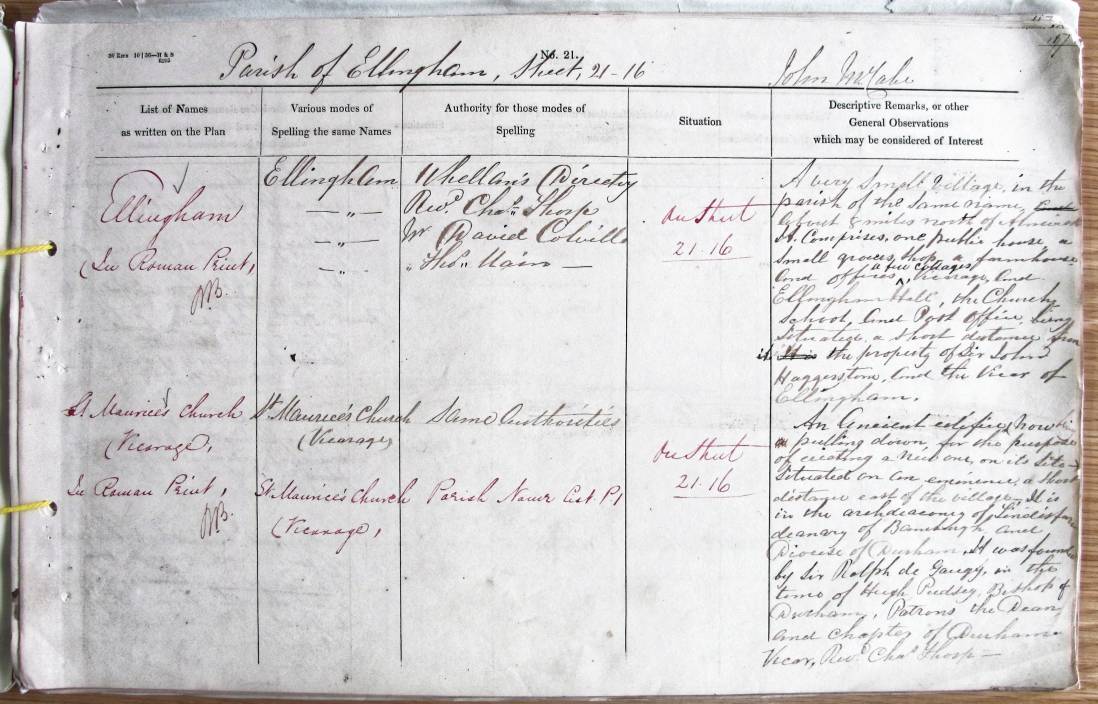 No. 21.
Parish of Ellingham, Sheet, 21-16
John McCabe
List of Names
as written on the Plan
Various modes of
Spelling the same Names
Authority for those modes of
Spelling
Situation
Descriptive Remarks, or other
General Observations
which may be considered of Interest
Ellingham
(In Roman Print,
Ellingham
— „ —
— „ —
— „ —
Whellan's Directory
Revd. Chas. Thorp
Mr David Colville
„ Thos. Main —
On Sheet
21.16
A very small village, in the
parish of the same name,
about 8 miles north of Alnwick
It Comprises, one public house, a
small grocers shop, a farmhouse
a few cottages,
and offices, Vicarage, and
Ellingham Hall, the Church
School, and Post office being
situated a short distance from
it the property of Sir John
Haggerston, and the Vicar of
Ellingham.
St Maurice's Church
(Vicarage,
St Maurice's Church
(Vicarage,
Same Authorities
On Sheet
21.16
In Roman Print,
St Maurice's Church
(Vicarage,
Parish Name
An Ancient edifice, now
pulling down, for the purpose
of erecting a new one, on its site—
Situated on an eminence, a short
distance east of the village—It is
in the archdeaconry of Lindisfarne
deanery of Bamburgh and
Diocese of Durham. It was founded
by Sir Ralph de Gaugy, in the
time of Hugh Pudsey, Bishop of
Durham, Patrons the Dean
and Chapter of Durham
Vicar, Revd. Chas Thorp—